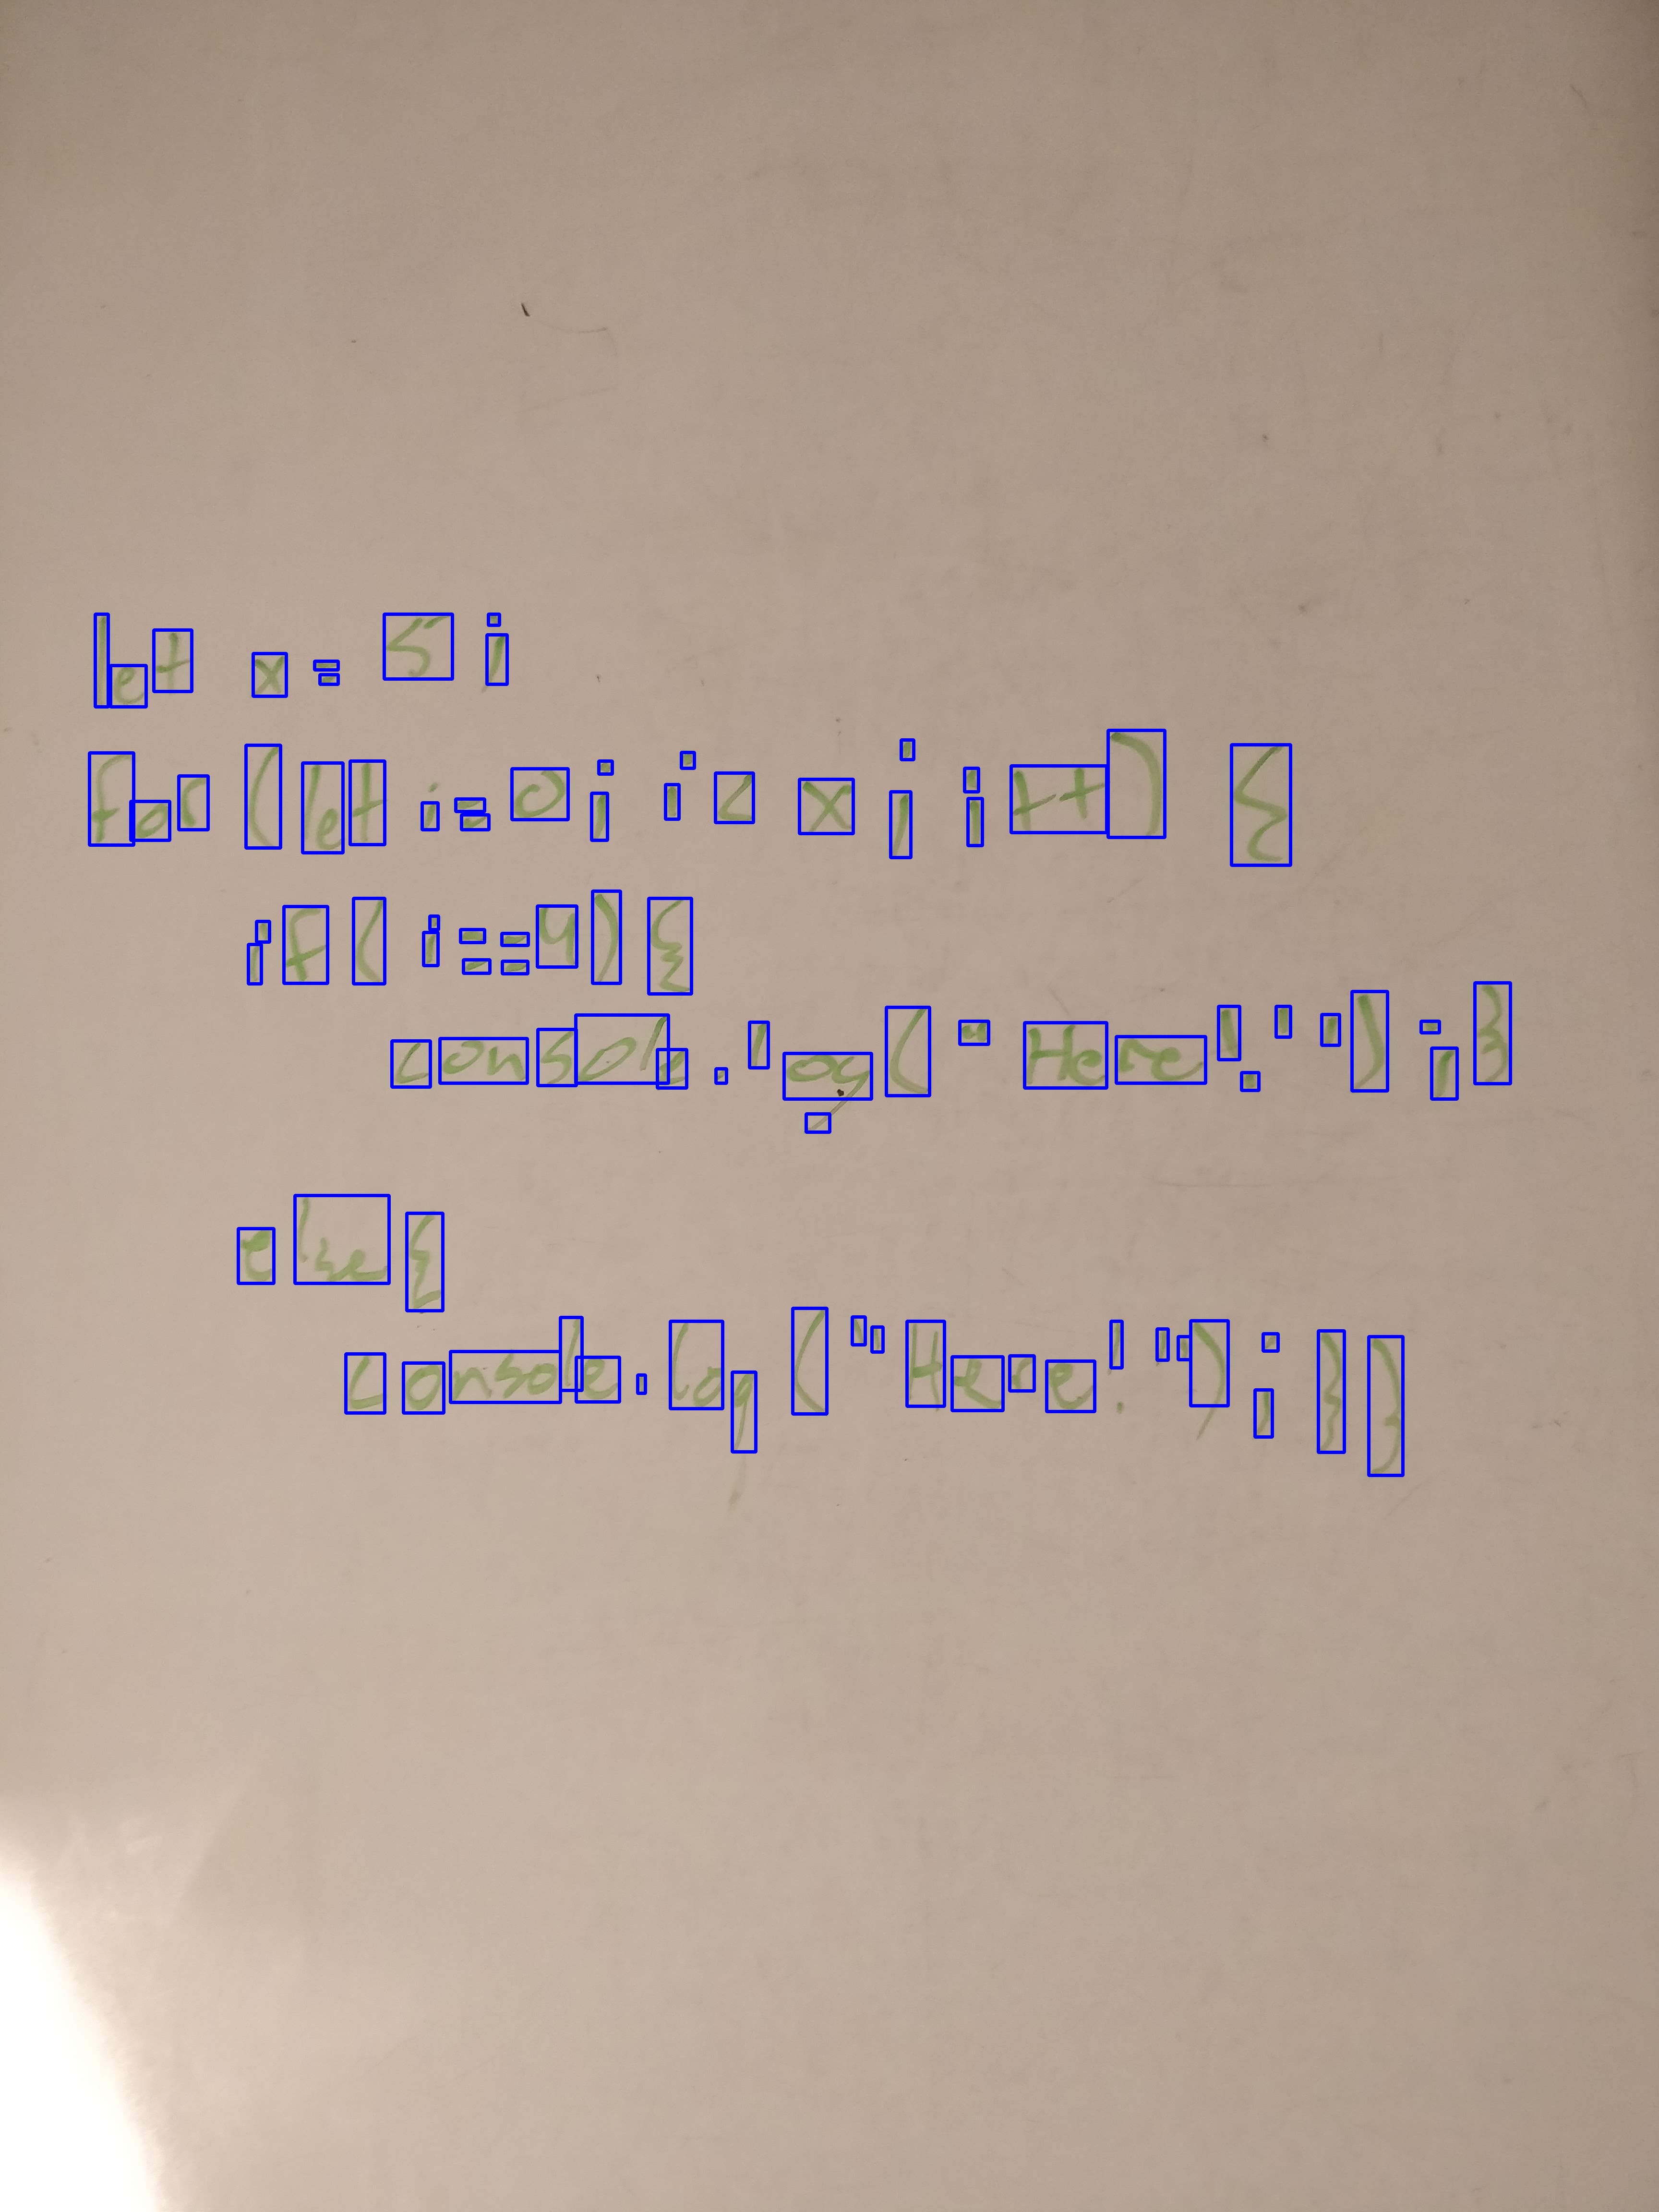 let x = 5;
for (let i=0; i < x; i++) {
if ( i==4) {
console.log("Here!");}
else {
console.log("Here!");}}